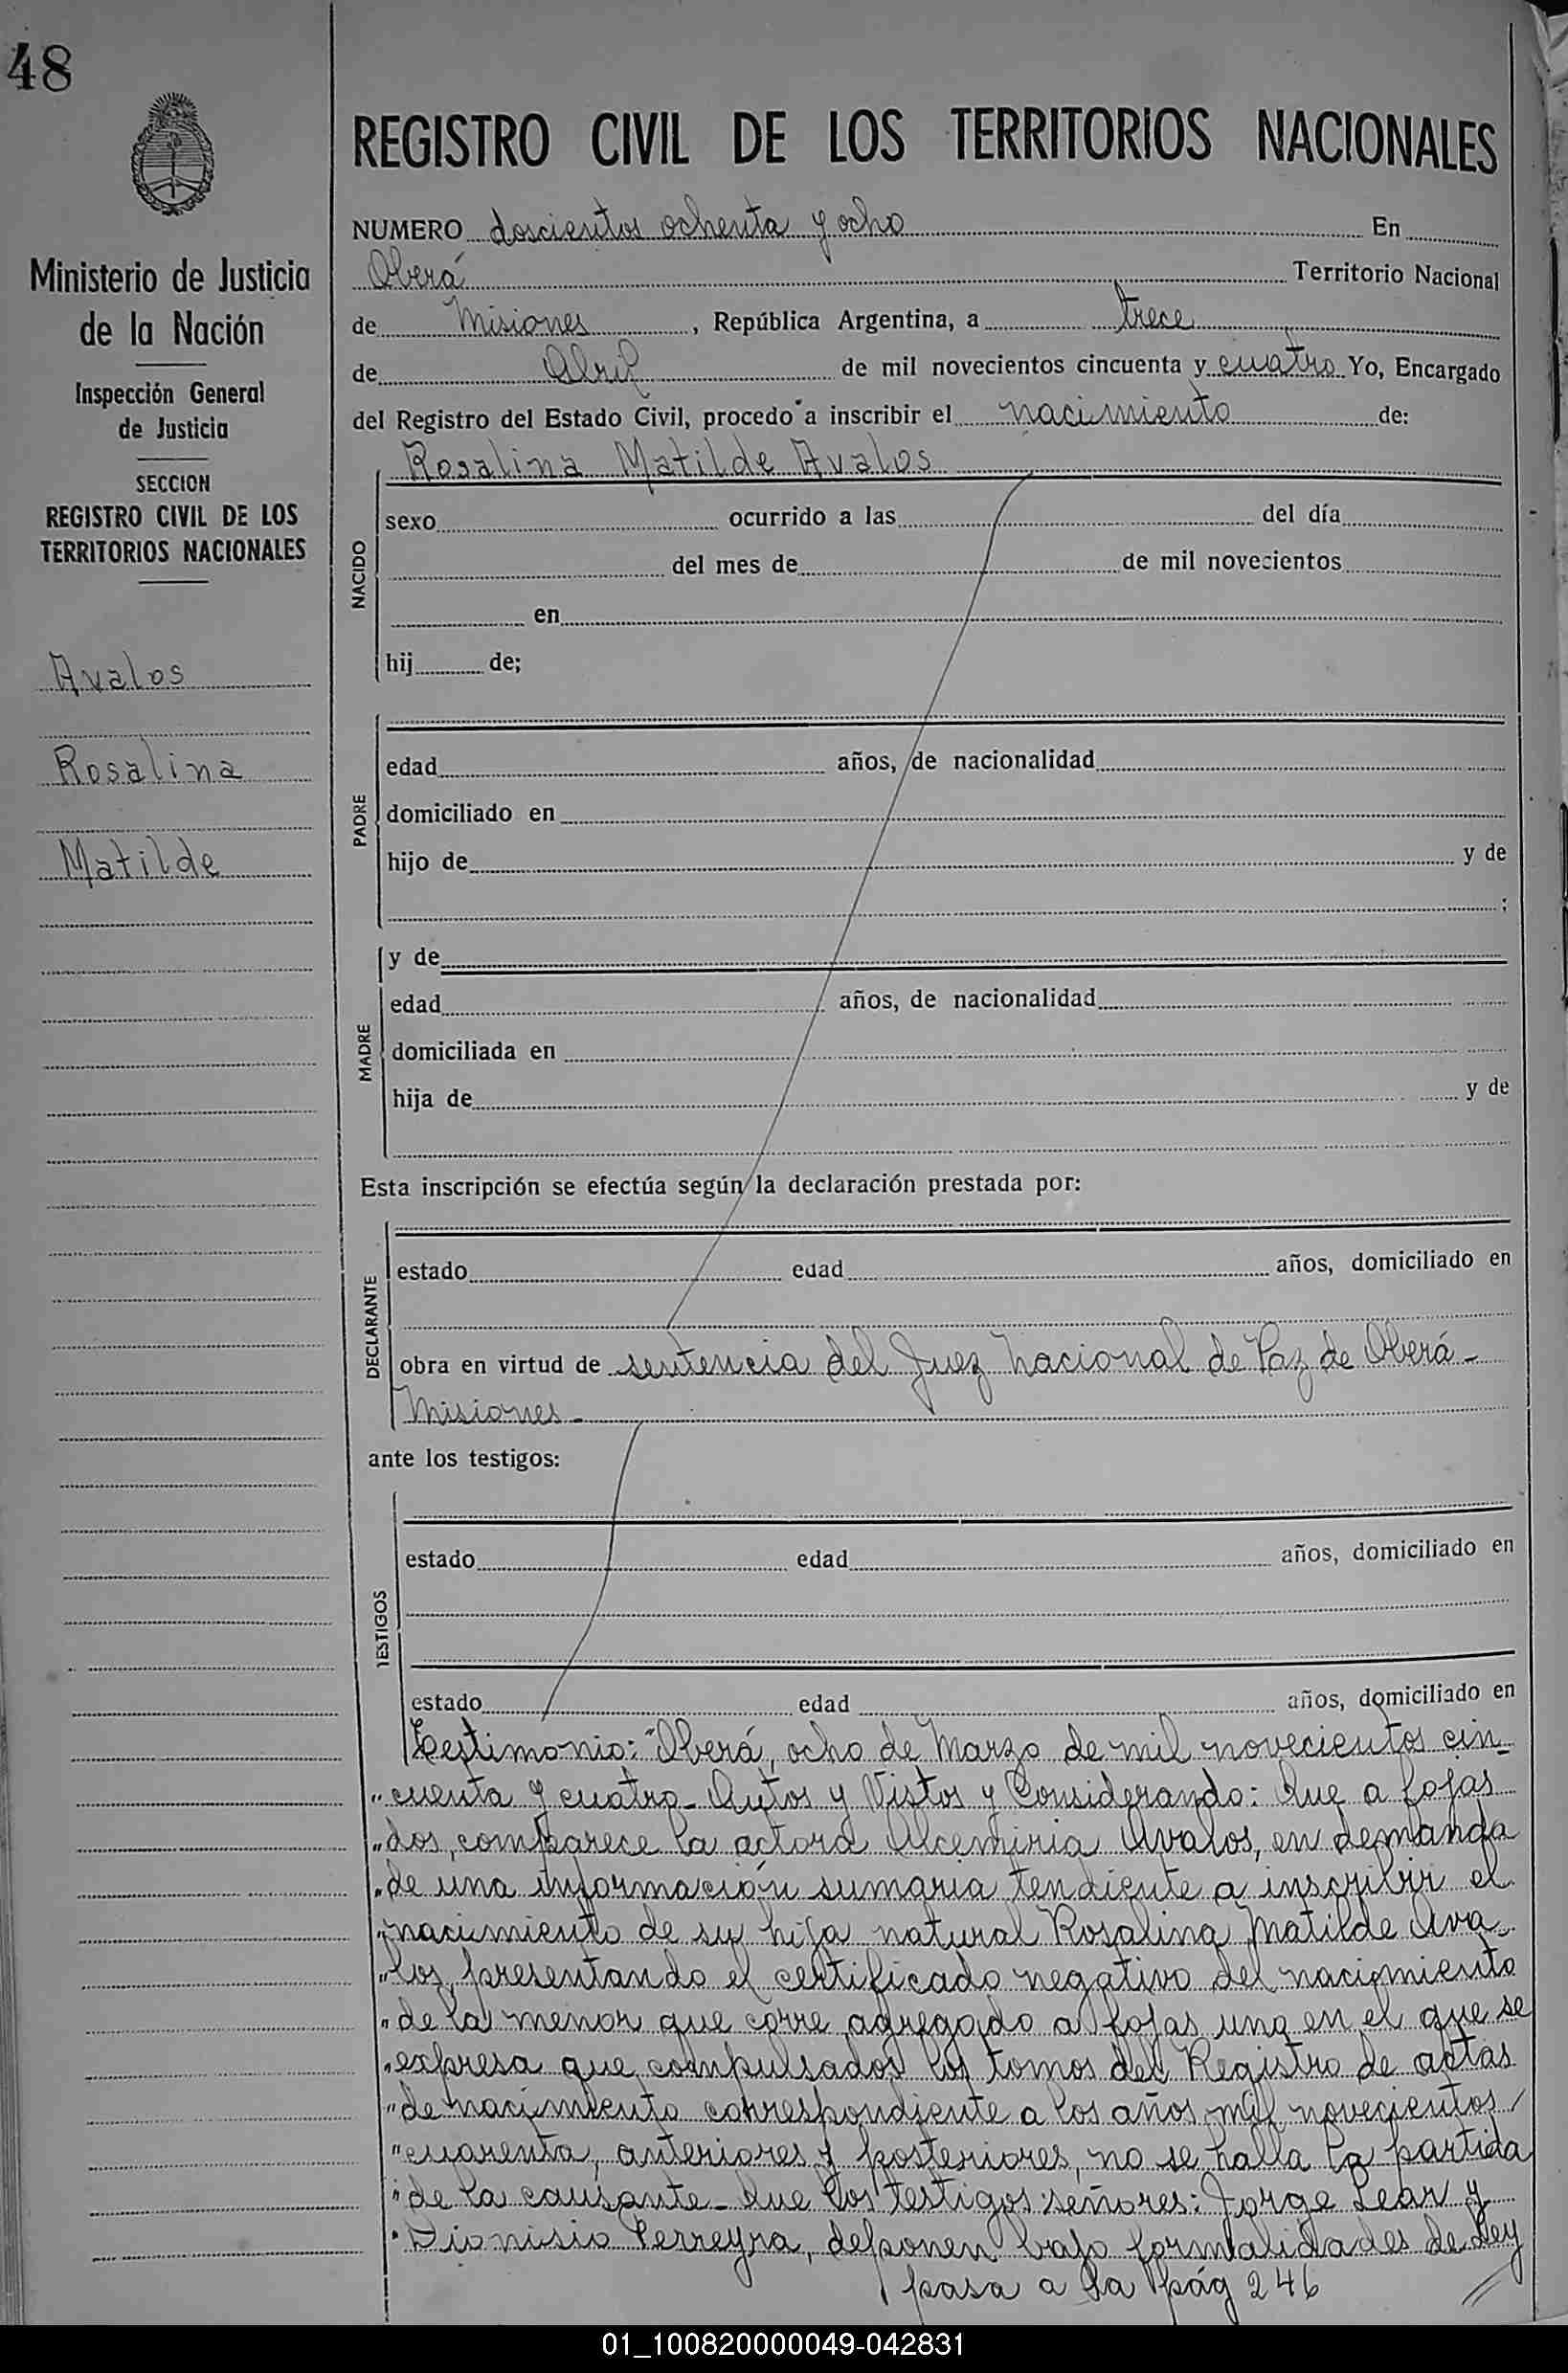 48
REGISTRO CIVIL DE LOS TERRITORIOS NACIONALES
Ministerio de Justicia
de la Nación
Inspección General
de Justicia
SECCION
REGISTRO CIVIL DE LOS
TERRITORIOS NACIONALES
Avalos
Rosalina
Matilde
NUMERO doscientos ochenta y ocho En
Oberá Territorio Nacional
de Misiones, República Argentina, a trece
de Abril de mil novecientos cincuenta y cuatro Yo, Encargado
del Registro del Estado Civil, procedo a inscribir el nacimiento de:
Rosalina Matilde Avalos
NACIDO
sexo ocurrido a las del día
del mes de de mil novecientos
en
hij de;
PADRE
edad años, de nacionalidad
domiciliado en
hijo de y de
;
MADRE
y de
edad años, de nacionalidad
domiciliada en
hija de y de
Esta inscripción se efectúa según la declaración prestada por:
DECLARANTE
estado edad años, domiciliado en
obra en virtud de sentencia del Juez Nacional de Paz de Oberá -
Misiones -
ante los testigos:
TESTIGOS
estado edad años, domiciliado en
estado edad años, domiciliado en
Testimonio: "Oberá, ocho de Marzo de mil novecientos cin-
"cuenta y cuatro - Autos y Vistos y Considerando: Que a fojas
"dos, comparece la actora Alcemiria Avalos, en demanda
"de una información sumaria tendiente a inscribir el
"nacimiento de su hija natural Rosalina Matilde Ava-
"los, presentando el certificado negativo del nacimiento
"de la menor que corre agregado a fojas uno en el que se
"expresa que compulsados los tomos del Registro de actas
"de nacimiento correspondiente a los años mil novecientos
"cuarenta, anteriores y posteriores, no se halla la partida
"de la causante - Que los testigos señores: Jorge Lear y
"Dionisio Ferreyra, deponen bajo formalidades de Ley
pasa a la pág 246
01_100820000049-042831